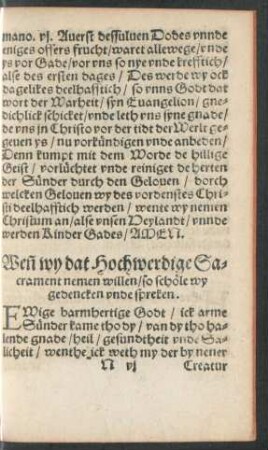 mano. vj. Auerst dessuluen Dodes vnnde
eniges offers frucht / waret allewege / vnde
ys vor Gade / vor vns so nye vnde krefftich /
alse des ersten dages / Des werde wy ock
dagelikes deelhafftich / so vnns Godt dat
wort der Warheit / syn Euangelion / gne-
dichlick schicket / vnde leth vns syne gnade /
de vns jn Christo vor der tidt der Werlt ge-
geuen ys / nu vorkündigen vnde anbeden /
Denn kumpt mit dem Worde de hillige
Geist / vorlüchtet vnde reiniget de herten
der Sünder durch den Gelouen / dorch
welcken Gelouen wy des vordenstes Chri-
sti deelhafftich werden / wente wy nemen
Christum an / alse vnsen Heylandt / vnnde
werden Kinder Gades / AMEN.
Weñ wy dat Hochwerdige Sa-
crament nemen willen / so schöle wy
gedencken vnde spreken.
EWige barmhertige Godt / ick arme
Sünder kame tho dy / van dy tho ha-
lende gnade / heil / gesundtheit vnde Sa-
licheit / wenthe ick weth my der by nener
N vj Creatur